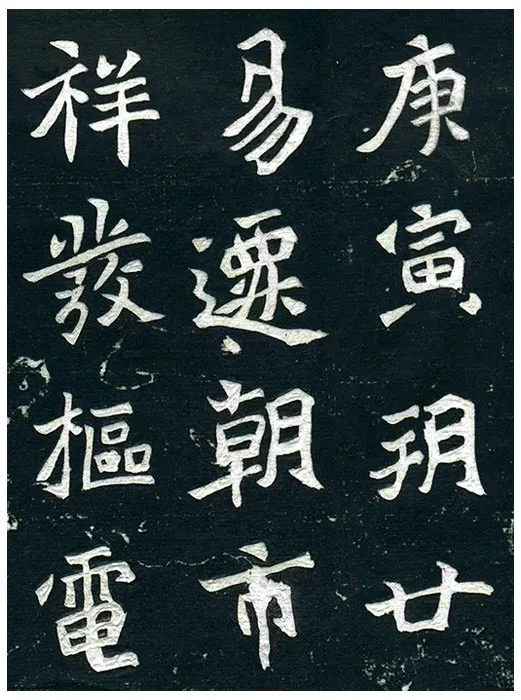 庚寅朔廿
易遷朝市
祥發樞電